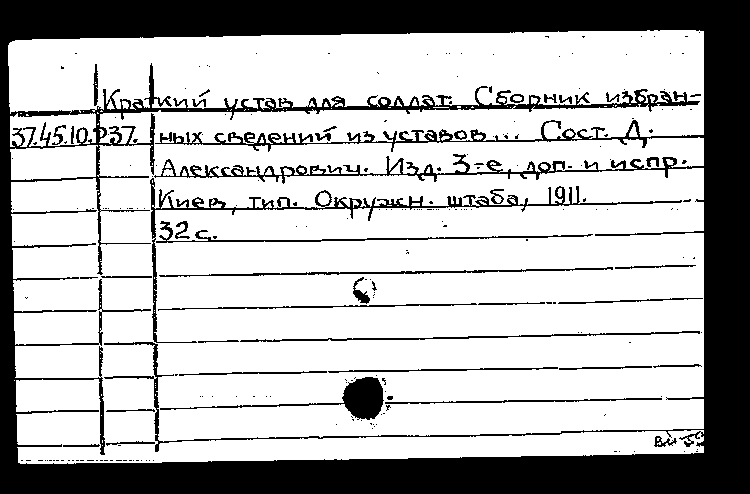 Краткий устав для солдат. Сборник избран-
37.45.10.237. ных сведений из уставов... Сост. Д.
Александрович. Изд. 3-е, доп. и испр.
Киев, тип. Окружн. штаба, 1911.
32 с.